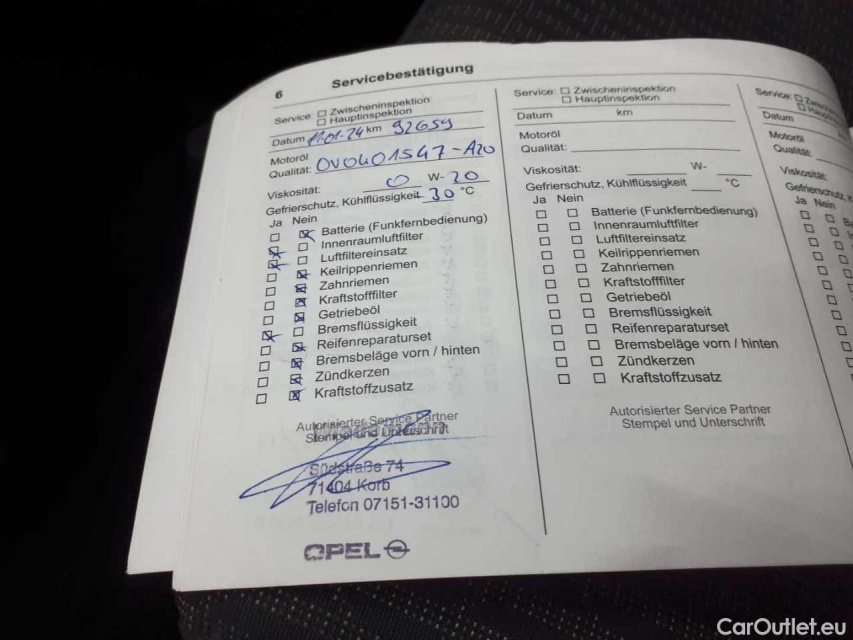 6 Servicebestätigung
Service: Zwischeninspektion
Hauptinspektion
Datum 11.01.24 km 92659
Motoröl
Qualität: OVO401547-A20
Viskosität: 0 W-20
Gefrierschutz, Kühlflüssigkeit 30 °C
Ja Nein
Batterie (Funkfernbedienung)
Innenraumluftfilter
Luftfiltereinsatz
Keilrippenriemen
Zahnriemen
Kraftstofffilter
Getriebeöl
Bremsflüssigkeit
Reifenreparaturset
Bremsbeläge vorn / hinten
Zündkerzen
Kraftstoffzusatz
Autorisierter Service Partner
Stempel und Unterschrift
Südstraße 74
71404 Korb
Telefon 07151-31100
OPEL
Service: Zwischeninspektion
Hauptinspektion
Datum km
Motoröl
Qualität:
Viskosität: W-
Gefrierschutz, Kühlflüssigkeit °C
Ja Nein
Batterie (Funkfernbedienung)
Innenraumluftfilter
Luftfiltereinsatz
Keilrippenriemen
Zahnriemen
Kraftstofffilter
Getriebeöl
Bremsflüssigkeit
Reifenreparaturset
Bremsbeläge vorn / hinten
Zündkerzen
Kraftstoffzusatz
Autorisierter Service Partner
Stempel und Unterschrift
Service:
Datum
Motoröl
Qualität:
Viskosität:
Gefrierschutz,
Ja Nein
CarOutlet.eu